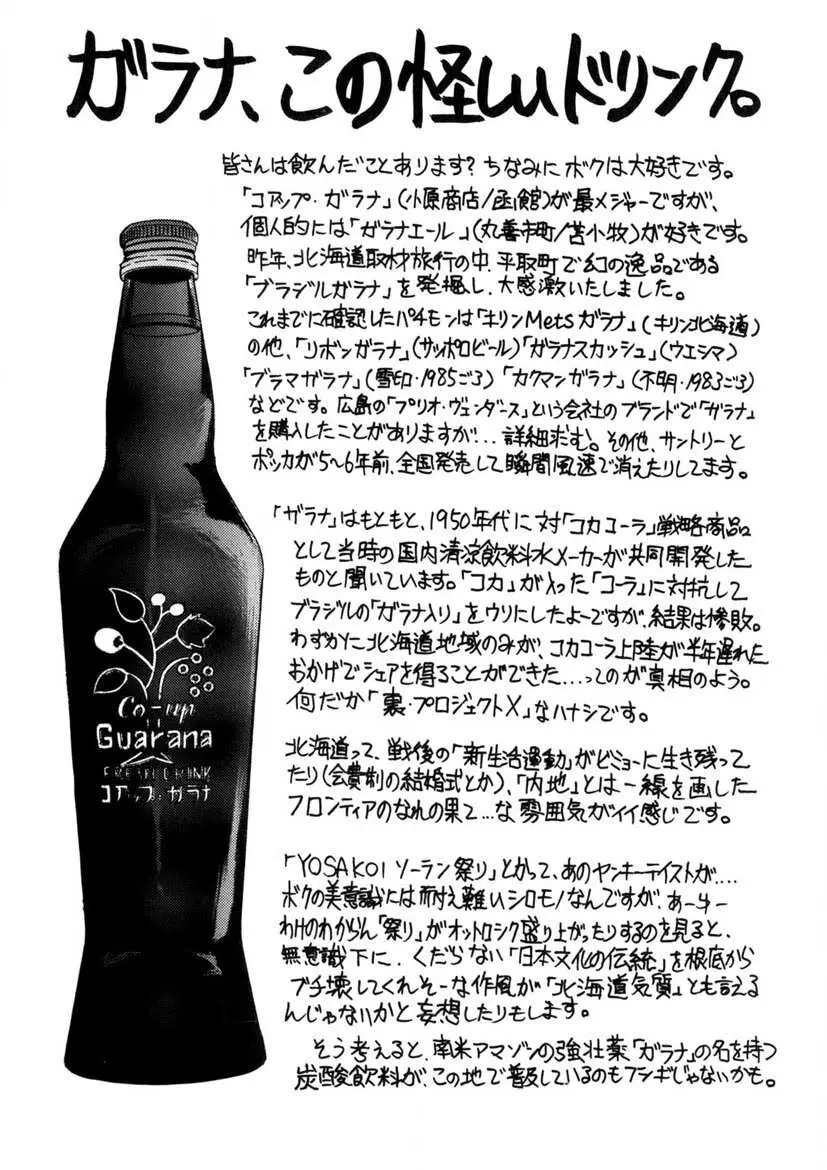 ガラナ、この怪しいドリンク。
皆さんは飲んだことあります?ちなみにボクは大好きです。
「コアップ・ガラナ」(小原商店/函館)が最メジャーですが、
個人的には「ガラナエール」(丸善市町/苫小牧)が好きです。
昨年、北海道取材旅行の中、平取町で幻の逸品である
「ブラジルガラナ」を発掘し、大感激いたしました。
これまでに確認したパチモンは「キリンMetsガラナ」(キリン北海道)
の他、「リボンガラナ」(サッポロビール)「ガラナスカッシュ」(ウエシマ)
「ブラマガラナ」(雪印・1985ごろ)「カクマンガラナ」(不明・1983ごろ)
などです。広島の「プリオ・ヴェンダース」という会社のブランドで「ガラナ」
を購入したことがありますが...詳細求む。その他、サントリーと
ポッカが5〜6年前、全国発売して瞬間風速で消えたりしてます。
「ガラナ」はもともと、1950年代に対「コカコーラ」戦略商品
として当時の国内清涼飲料水メーカーが共同開発した
ものと聞いています。「コカ」が入った「コーラ」に対抗して
ブラジルの「ガラナ入り」をウリにしたよーですが、結果は惨敗。
わずかに北海道地域のみが、コカコーラ上陸が半年遅れた
おかげでシェアを得ることができた...ってのが真相のよう。
何だか「裏・プロジェクトX」なハナシです。
北海道って、戦後の「新生活運動」がビミョーに生き残って
たり(会費制の結婚式とか)、「内地」とは一線を画した
フロンティアのなれの果て...な雰囲気がイイ感じです。
「YOSAKOI ソーラン祭り」とかって、あのヤンキーテイストが....
ボクの美意識には耐え難いシロモノなんですが、あーゆー
わけのわからん「祭り」がオットロシク盛り上がったりするのを見ると、
無意識下に、くだらない「日本文化の伝統」を根底から
ブチ壊してくれそーな作風が「北海道気質」とも言える
んじゃないかと妄想したりもします。
そう考えると、南米アマゾンの強壮薬「ガラナ」の名を持つ
炭酸飲料が、この地で普及しているのもフシギじゃないかも。
Co-up
Guarana
コアップ・ガラナ